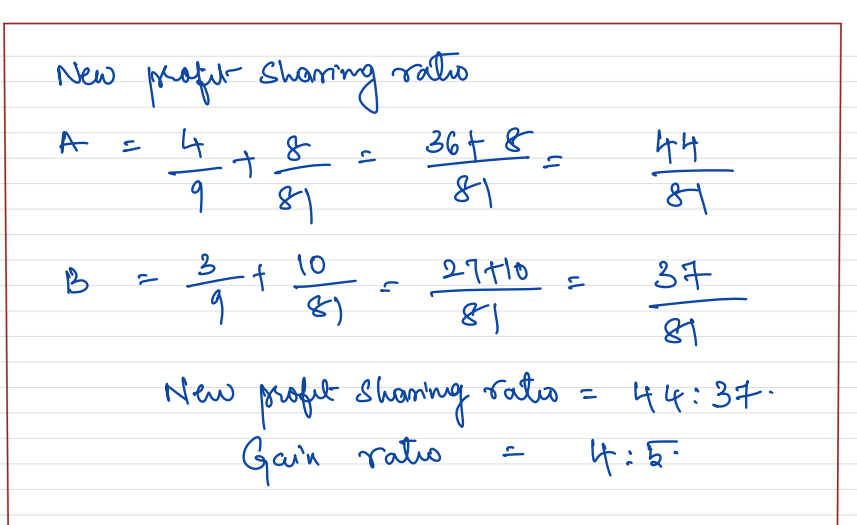 New profit sharing ratio
A = 4/9 + 8/81 = 36+8/81 = 44/81
B = 3/9 + 10/81 = 27+10/81 = 37/81
New profit sharing ratio = 44:37.
Gain ratio = 4:5.